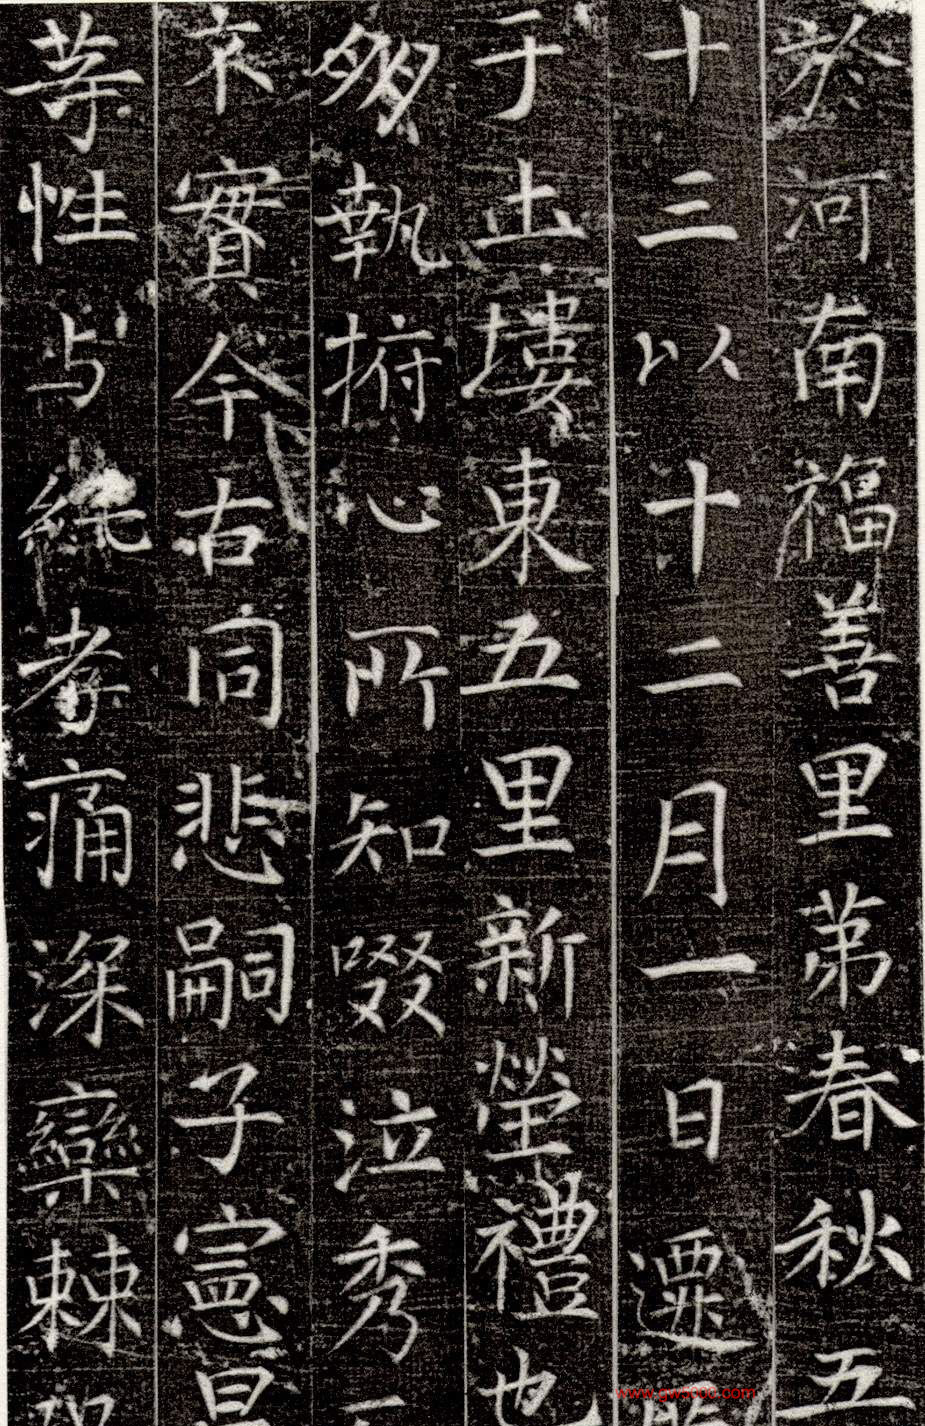 於河南福善里苐春秋五
十三以十二月一日遷
于土塿東五里新塋禮也
執拊心所知啜泣秀
哀實今古同悲嗣子寔
等性与純孝痛深欒棘
www.gw5000.com